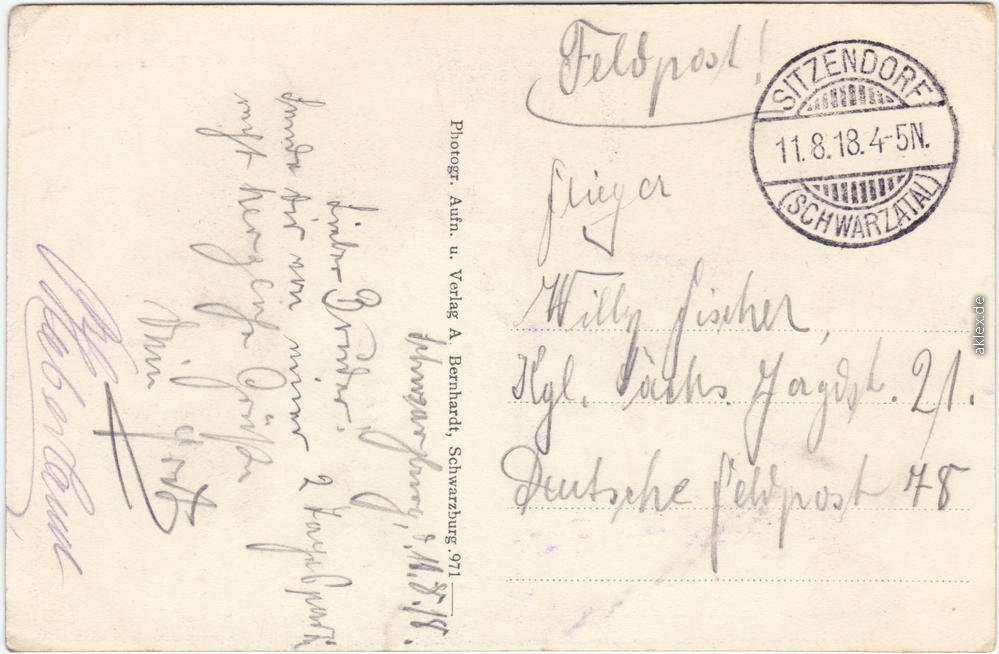 Feldpost!
SITZENDORF
11.8.18.4-5N.
(SCHWARZATAL)
Flieger
Willy Fischer,
Kgl. Sächs. Jagdst. 21.
Deutsche Feldpost 78
Photogr. Aufn. u. Verlag A. Bernhardt, Schwarzburg. 971
Schwarzburg, d. 11.8.18.
Lieber Bruder!
Sende dir von einer 2 Tagespartie
recht herzliche Grüße
Dein
aklex.de